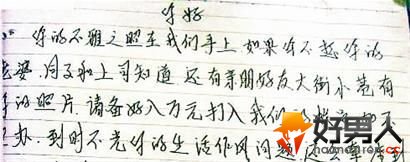 你好
你的不雅之照在我们手上如果你不想你的
老婆.同事和上司知道还有亲朋好友大街小巷有
你的照片.请备好八万元打入我们
办.到时不光你的生活作风问题还会
好男人